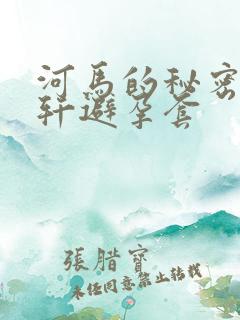 河馬的秘密
轩避孕套
張腊寶
未经同意禁止转载